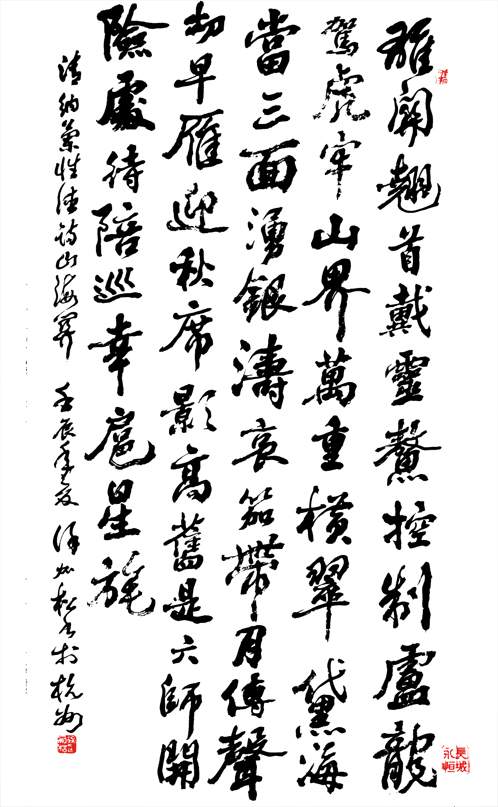 雄關翹首戴靈鰲控制盧龍
駕虎牢山界萬重橫翠黛海
當三面湧銀濤哀笳帶月傳聲
切早雁迎秋席影高舊是六師開
險處待陪巡幸扈星旄
清納蘭性德詩山海關 壬辰年夏 松書於杭州
長城
永恒